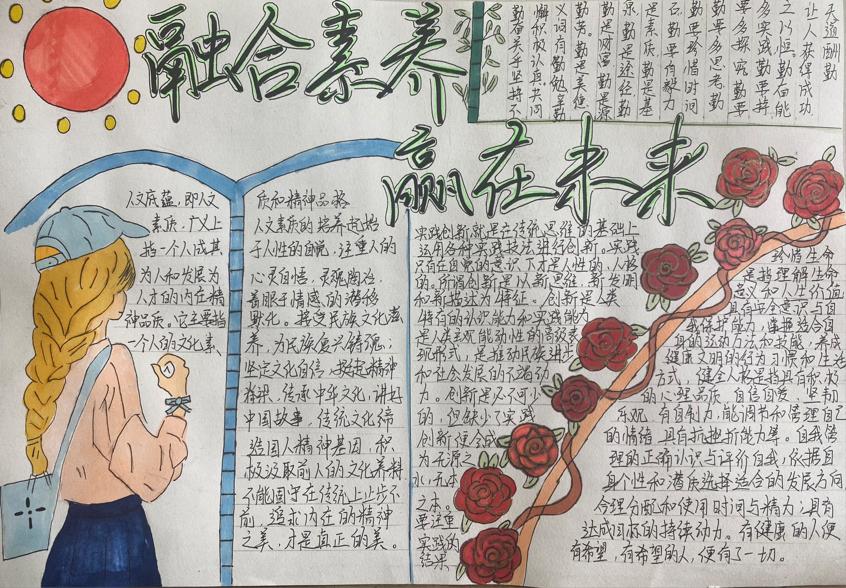 融合素养
赢在未来
天道酬勤
让人获得成功
之以恒。勤奋能
多实践,勤要持
要多探究,勤要
勤要多思考,勤
勤要珍惜时间
石,勤要有毅力
是素质,勤是基
示,勤是途径,勤
勤劳。勤是美德
义词有勤勉、辛勤
懈,积极认真。共同
勤奋关乎坚持不
人文底蕴,即人文
素质,广义上
指一个人成其
为人和发展为
人才的内在精
神品质。它主要指
一个人的文化素
质和精神品格
人文素质的培养起始
于人性的自觉,注重人的
心灵自悟,灵魂陶冶,
着眼于情感的潜移
默化。接受民族文化滋
养,为民族复兴铸魂;
坚定文化自信,挺起精神
脊梁,传承中华文化,讲好
中国故事,传统文化缔
造国人精神基因,积
极汲取前人的文化养料
不能固守在传统上止步不
前,追求内在的精神
之美,才是真正的美。
实践创新就是在传统思维的基础上
运用各种实践技法进行创新。实践
只有在自觉的意识下才是人性的,人格
的。所谓创新是以新思维,新发明
和新描述为特征。创新是人类
特有的认识能力和实践能力
是人类主观能动性的高级表
现形式,是推动民族进步
和社会发展的不竭动
力。创新是不可少
的,但缺少了实践
创新便会成
为无源之
水,无本
之木。
要注重
实践的
结果
珍惜生命
是指理解生命
意义和人生价值
具有安全意识与自
我保护能力,掌握适合自
身的运动方法和技能,养成
健康文明的行为习惯和生活
方式,健全人格是指具有积极
的心理品质,自信自爱,坚韧
乐观,有自制力,能调节和管理自己
的情绪,具有抗挫折能力等。自我管
理的正确认识与评价自我,依据自
身个性和潜质选择适合的发展方向,
合理分配和使用时间与精力;具有
达成目标的持续动力。有健康的人便
有希望,有希望的人,便有了一切。